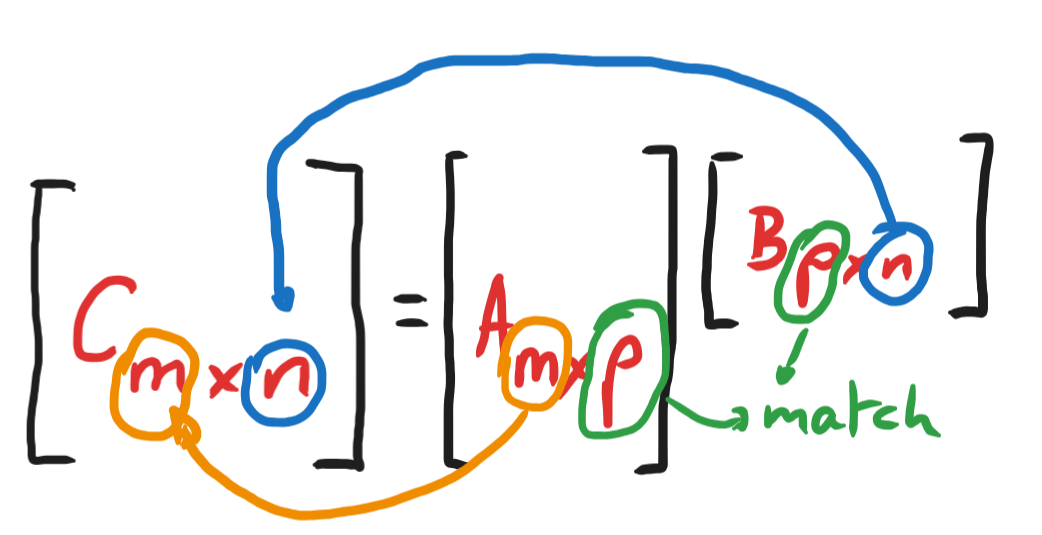 [C m×n] = [A m×p] [B p×n]
match